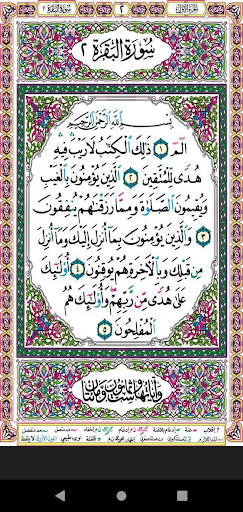 سُورَةُ البَقَرَة ٢
٢
الجزء الاول
سُورَةُ البَقَرَةِ ٢
بِسْمِ اللَّهِ الرَّحْمَٰنِ الرَّحِيمِ
الٓمٓ ﴿١﴾ ذَٰلِكَ الْكِتَٰبُ لَا رَيْبَ فِيهِ
هُدًى لِّلْمُتَّقِينَ ﴿٢﴾ الَّذِينَ يُؤْمِنُونَ بِالْغَيْبِ
وَيُقِيمُونَ الصَّلَوٰةَ وَمِمَّا رَزَقْنَٰهُمْ يُنفِقُونَ
﴿٣﴾ وَالَّذِينَ يُؤْمِنُونَ بِمَا أُنزِلَ إِلَيْكَ وَمَا أُنزِلَ
مِن قَبْلِكَ وَبِالْأَخِرَةِ هُمْ يُوقِنُونَ ﴿٤﴾ أُولَٰئِكَ
عَلَىٰ هُدًى مِّن رَّبِّهِمْ وَأُولَٰئِكَ هُمُ
الْمُفْلِحُونَ ﴿٥﴾